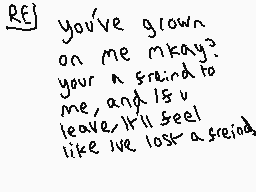 RE] you've grown
on me mkay?
your a freind to
me, and If u
leave, It'll feel
like Ive lost a freind,